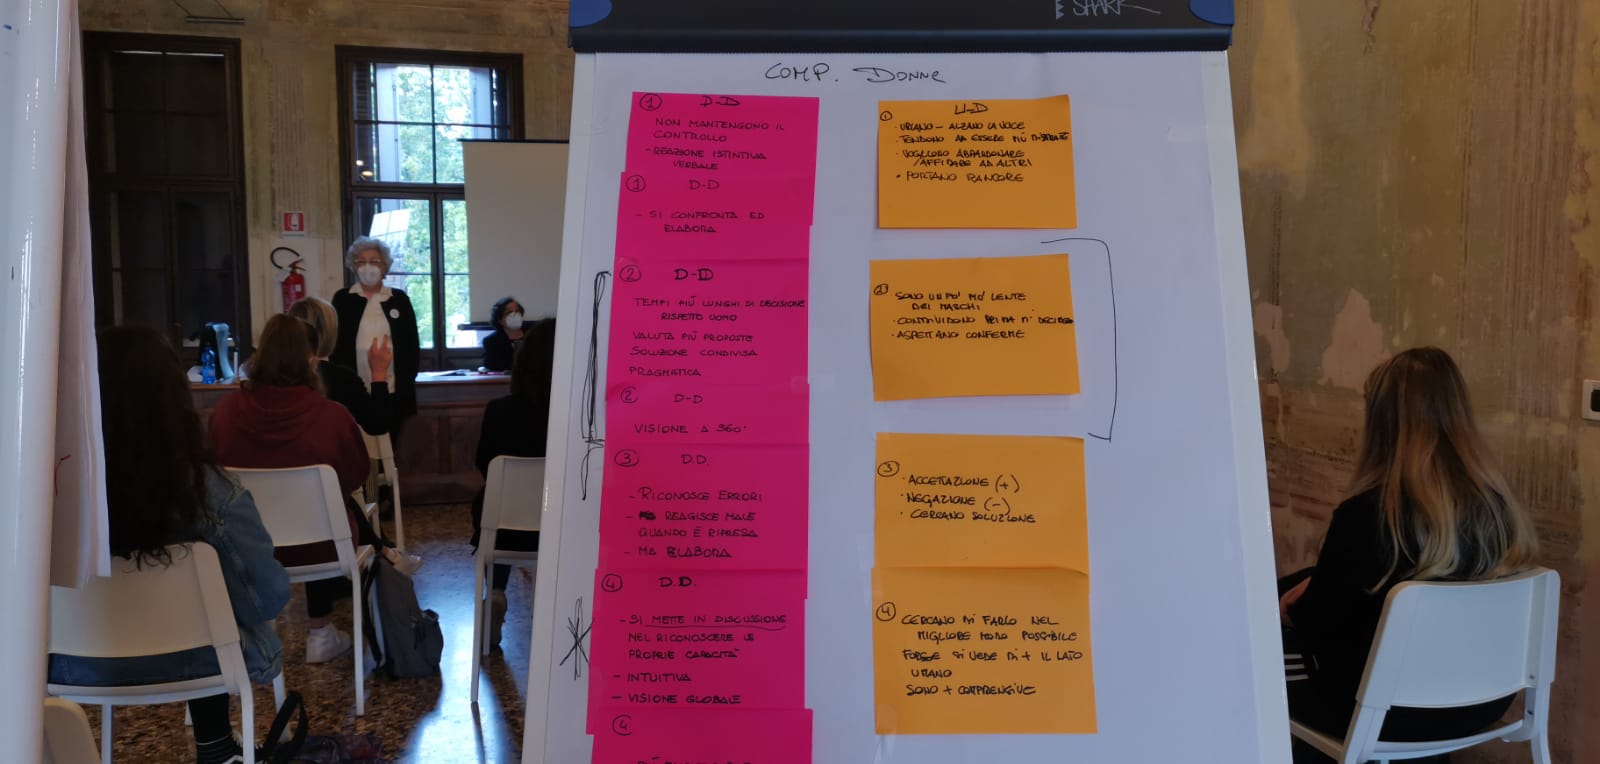 SHARK
COMP. DONNE
① D-D
NON MANTENGONO IL
CONTROLLO
- REAZIONE ISTINTIVA
VERBALE
① D-D
- SI CONFRONTA ED
ELABORA
② D-D
TEMPI PIÙ LUNGHI DI DECISIONE
RISPETTO UOMO
VALUTA PIÙ PROPOSTE
SOLUZIONE CONDIVISA
PRAGMATICA
② D-D
VISIONE A 360°
③ D.D.
- RICONOSCE ERRORI
- REAGISCE MALE
QUANDO È RIPRESA
- MA ELABORA
④ D.D.
- SI METTE IN DISCUSSIONE
NEL RICONOSCERE LE
PROPRIE CAPACITÀ
- INTUITIVA
- VISIONE GLOBALE
④
① U-D
• URLANO - ALZANO LA VOCE
• TENDONO AD ESSERE PIÙ
• VOGLIONO ABBANDONARE
/AFFIDARE AD ALTRI
• PORTANO RANCORE
②
SONO UN PO' PIÙ LENTE
DEI MASCHI
• CONDIVIDONO PRIMA DI DECIDERE
• ASPETTANO CONFERME
③
• ACCETTAZIONE (+)
• NEGAZIONE (-)
• CERCANO SOLUZIONE
④ CERCANO DI FARLO NEL
MIGLIORE MODO POSSIBILE
FORSE SI VEDE DI + IL LATO
UMANO
SONO + COMPRENSIVE